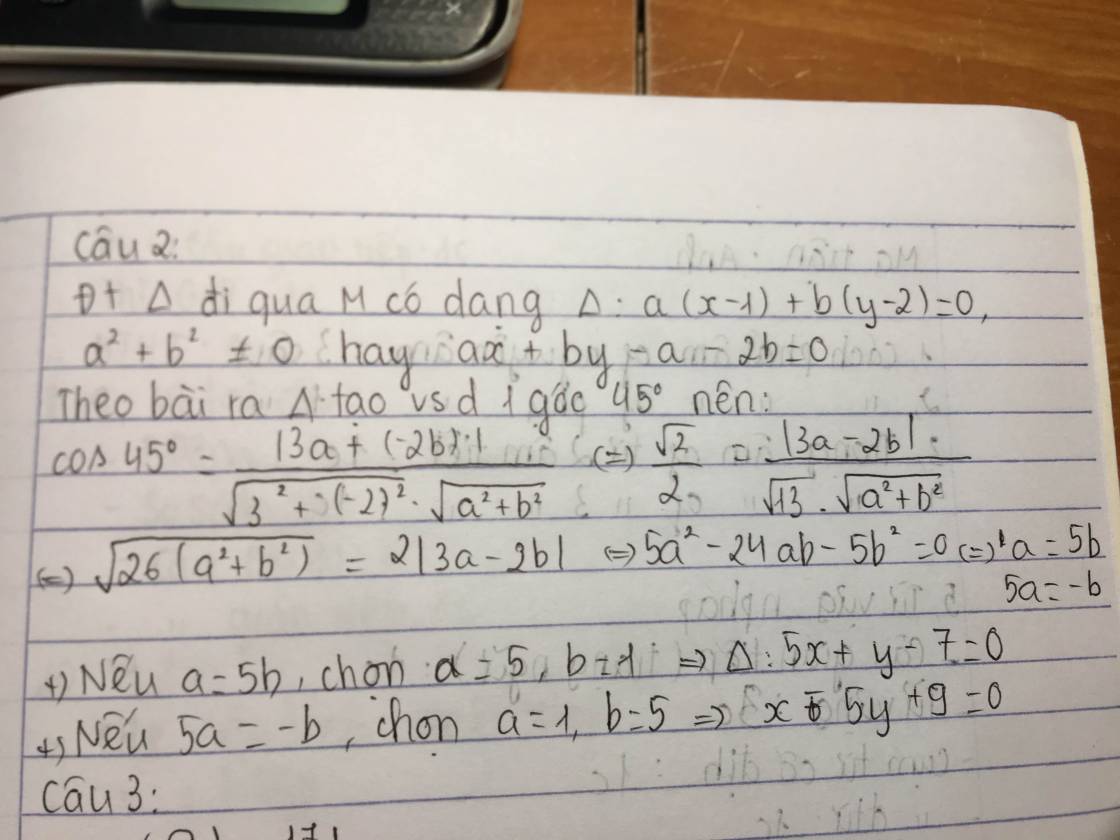 Câu 2:
Đt Δ đi qua M có dạng Δ: a(x-1) + b(y-2)=0,
a² + b² ≠ 0 hay ax + by - a - 2b=0
Theo bài ra Δ tạo vs d 1 góc 45° nên:
cos 45° = |3a + (-2b)| / √(3² + (-2)²) . √(a²+b²) (=) √2/2 = |3a - 2b| / √13 . √(a²+b²)
(=) √(26(a²+b²)) = 2|3a - 2b| (=) 5a² - 24ab - 5b² = 0 (=) a = 5b
5a = -b
+) Nếu a=5b, chọn a = 5, b=1 => Δ: 5x+ y - 7=0
+) Nếu 5a = -b, chọn a=1, b=5 => x - 5y +9 =0
Câu 3: